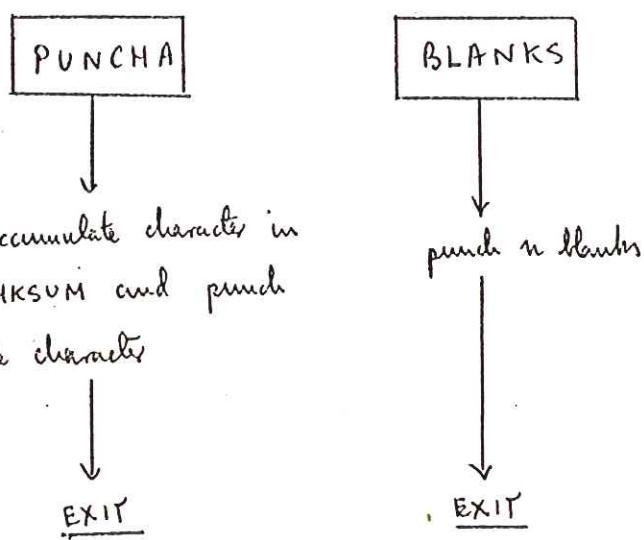 PUNCHA
accumulate character in
HKSUM and punch
character
EXIT
BLANKS
punch n blanks
EXIT